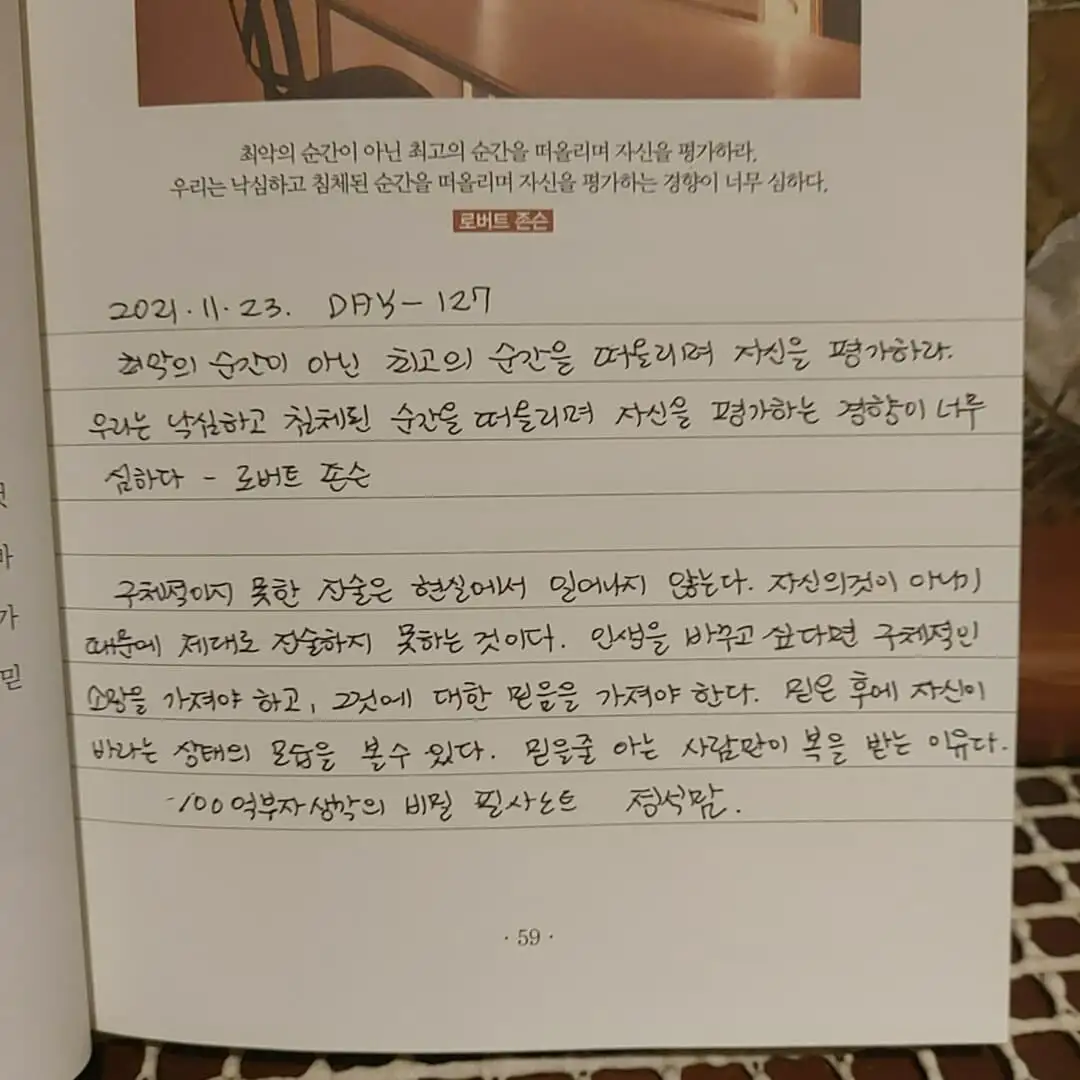 최악의 순간이 아닌 최고의 순간을 떠올리며 자신을 평가하라.
우리는 낙심하고 침체된 순간을 떠올리며 자신을 평가하는 경향이 너무 심하다.
로버트 존슨
2021.11.23. DAY-127
최악의 순간이 아닌 최고의 순간을 떠올리며 자신을 평가하라.
우리는 낙심하고 침체된 순간을 떠올리며 자신을 평가하는 경향이 너무
심하다 - 로버트 존슨
구체적이지 못한 진술은 현실에서 일어나지 않는다. 자신의것이 아니기
때문에 제대로 진술하지 못하는 것이다. 인생을 바꾸고 싶다면 구체적인
소망을 가져야 하고, 그것에 대한 믿음을 가져야 한다. 믿은 후에 자신이
바라는 상태의 모습을 볼수 있다. 믿을줄 아는 사람만이 복을 받는 이유다.
-100억부자생각의 비밀 필사노트
· 59 ·
바
가
믿